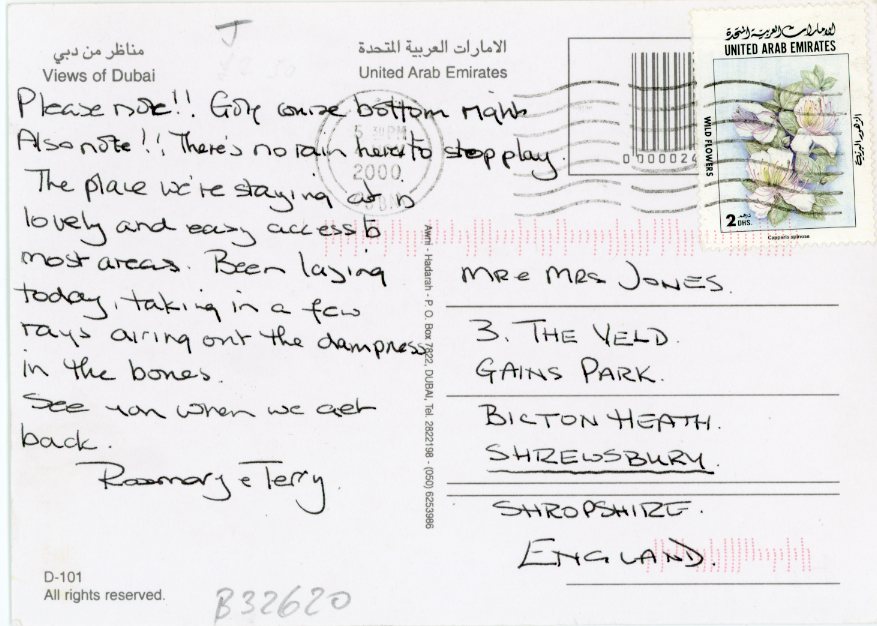 مناظر من دبي
Views of Dubai
الامارات العربية المتحدة
United Arab Emirates
Please note!! Golf course bottom right
Also note!! There's no rain here to stop play.
The place we're staying at is
lovely and easy access to
most areas. Been laying
today, taking in a few
rays airing out the dampness
in the bones.
See you when we get
back.
Rosemary & Terry.
D-101
All rights reserved.
B32620
J
Awni - Hadarah - P. O. Box 7822, DUBAI, Tel. 2822198 - (050) 6253986
2000
0 000024
الامارات العربية المتحدة
UNITED ARAB EMIRATES
WILD FLOWERS
2 DHS.
Capparis spinosa
MR & MRS JONES.
3. THE YELD.
GAINS PARK.
BICTON HEATH.
SHREWSBURY.
SHROPSHIRE.
ENGLAND.